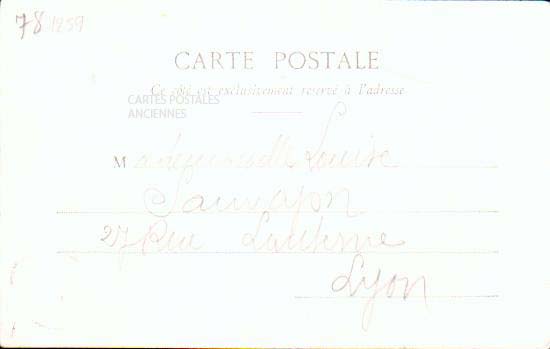 78 1259
CARTE POSTALE
Ce côté est exclusivement reservé à l'adresse
CARTES POSTALES
ANCIENNES
Mademoiselle Louise
27 Rue Lanterne
Lyon